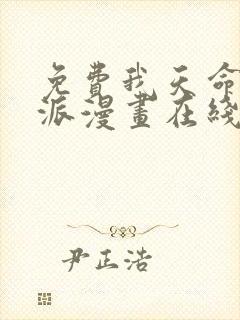 免費我天命
派漫畫在綫
尹正浩